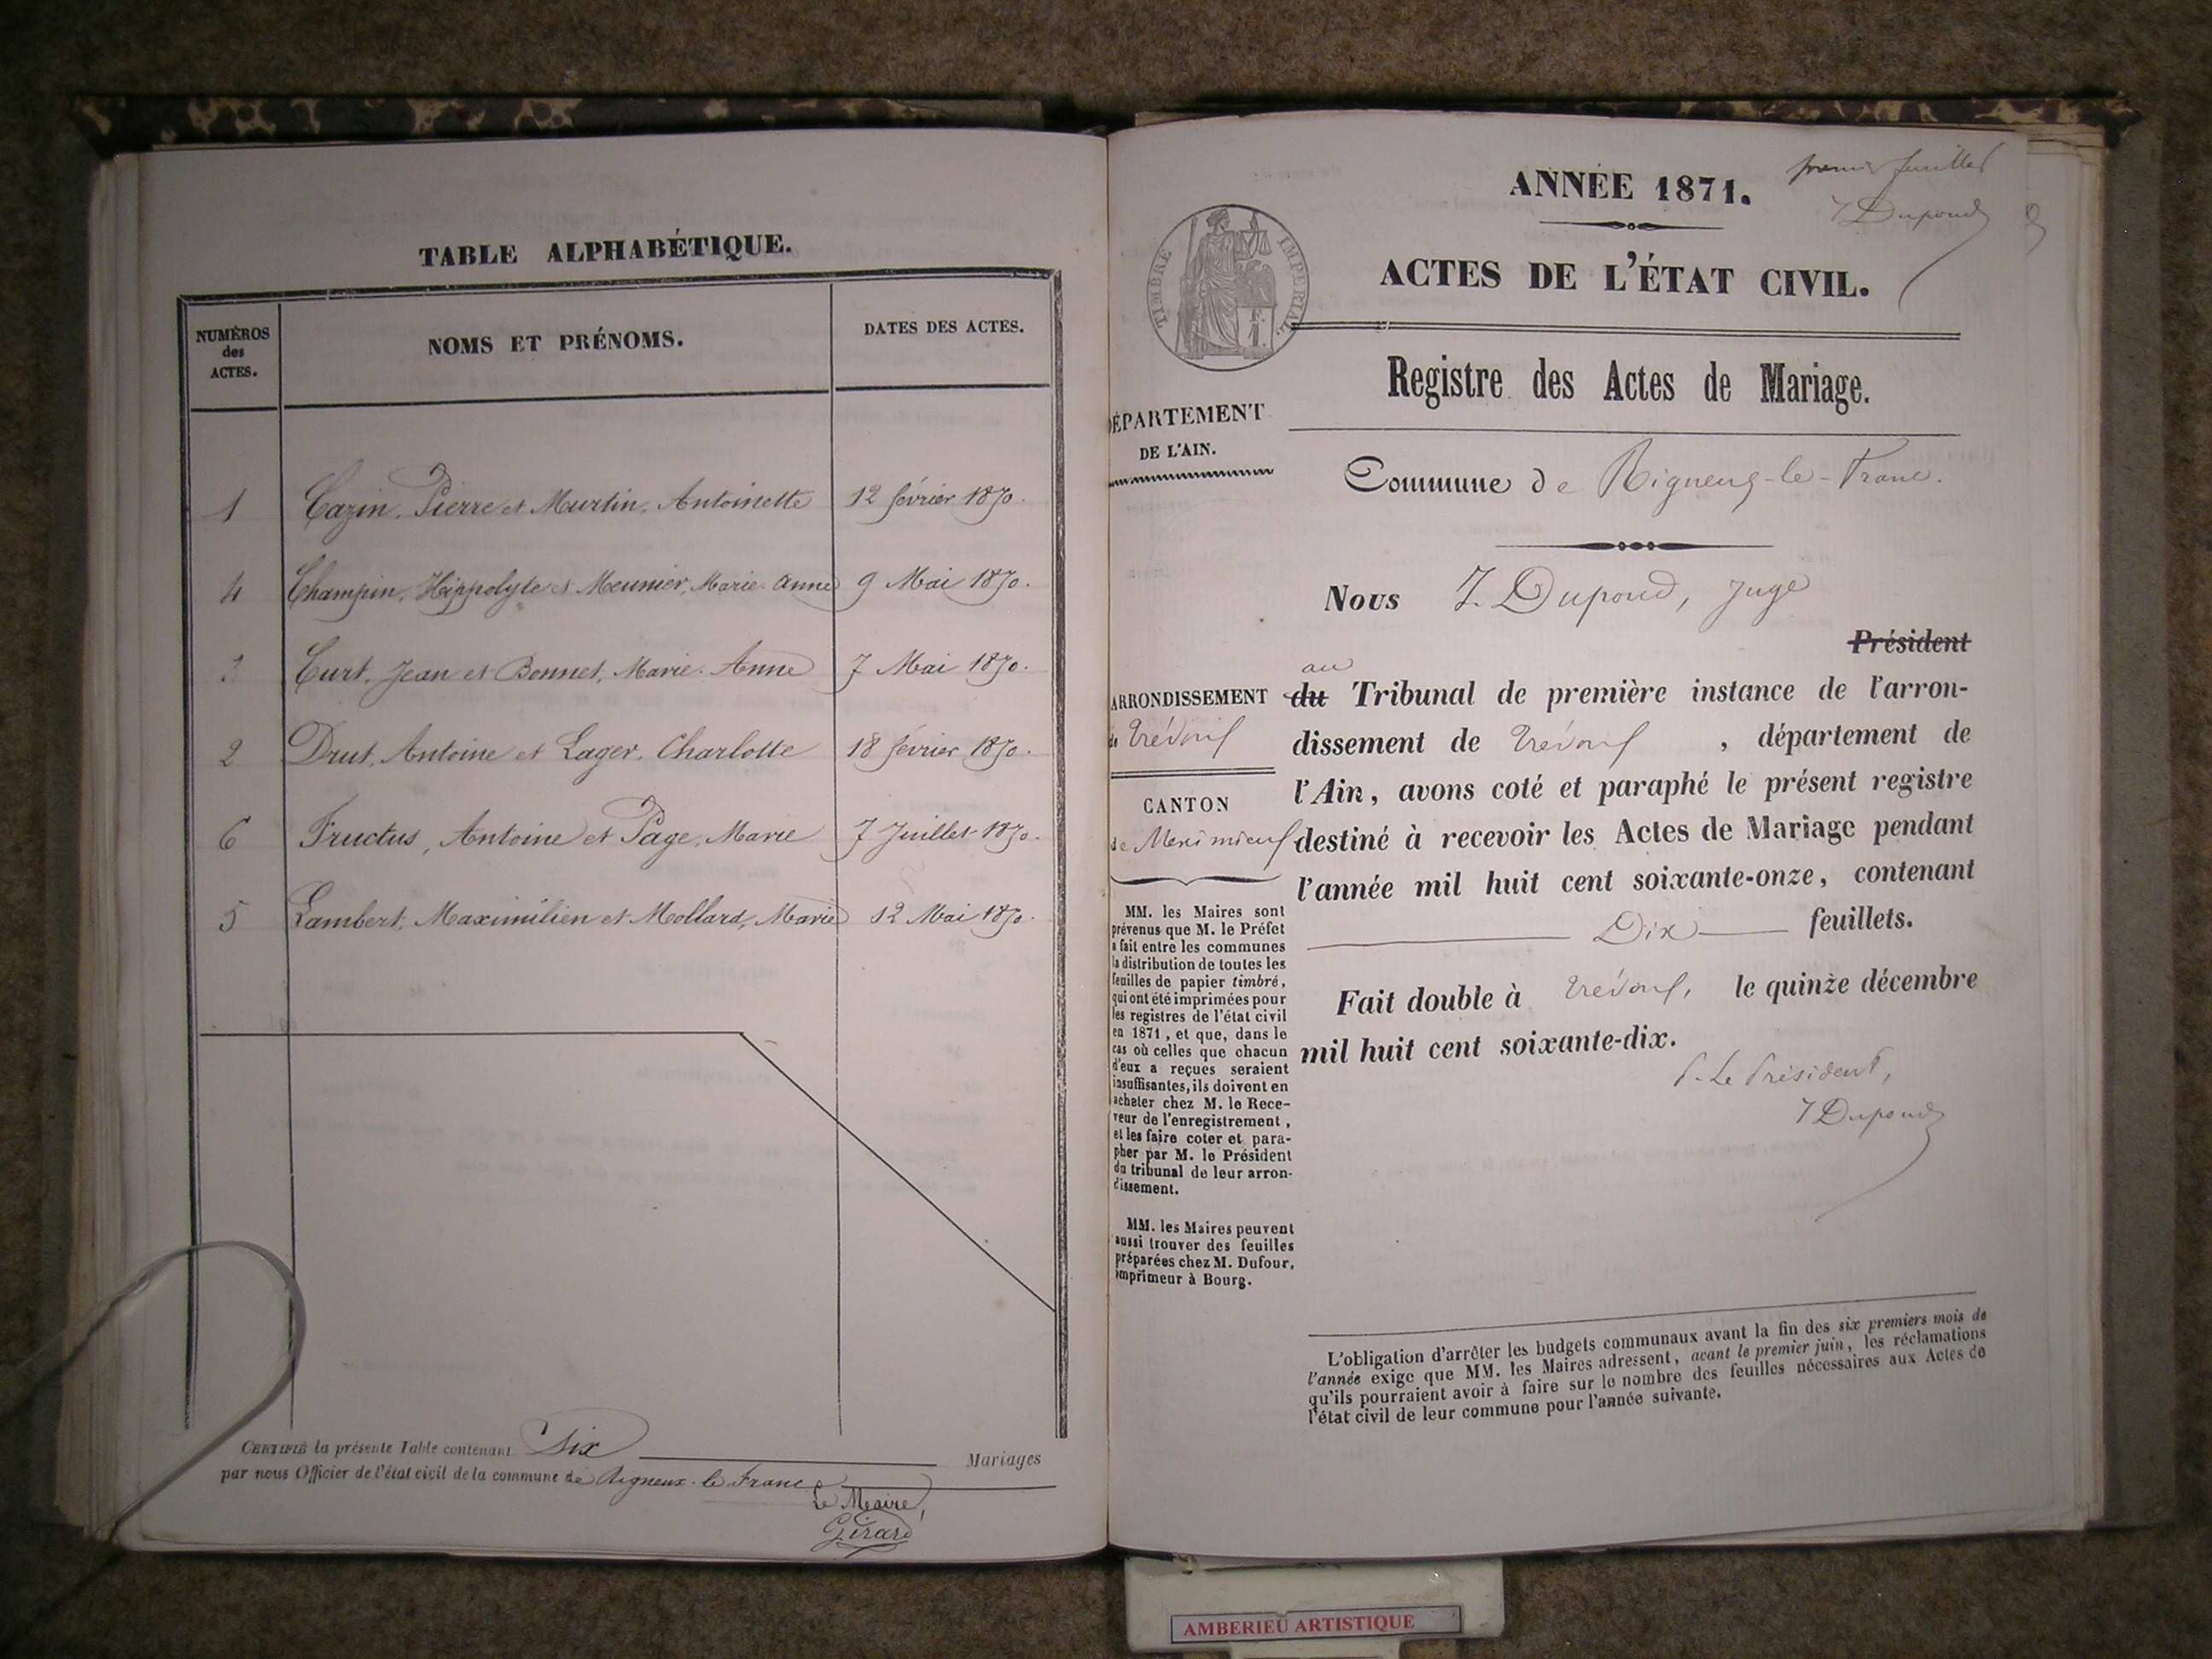 TABLE ALPHABÉTIQUE.
NUMÉROS
des
ACTES.
NOMS ET PRÉNOMS.
DATES DES ACTES.
1 Cazin, Pierre et Murtin, Antoinette 12 février 1870.
4 Champin, Hippolyte et Meunier, Marie-Anne 9 Mai 1870.
3 Curt, Jean et Bonnet, Marie-Anne 7 Mai 1870.
2 Drut, Antoine et Lager, Charlotte 18 février 1870.
6 Fructus, Antoine et Page, Marie 7 Juillet 1870.
5 Lambert, Maximilien et Mollard, Marie 12 Mai 1870.
CERTIFIÉ la présente Table contenant Six Mariages
par nous Officier de l'état civil de la commune de Rigneux-le-Franc
Le Maire,
Girard
premier feuillet
J Dupond
ANNÉE 1871.
TIMBRE IMPERIAL
ACTES DE L'ÉTAT CIVIL.
Registre des Actes de Mariage.
DÉPARTEMENT
DE L'AIN.
Commune de Rigneux-le-Franc.
Nous J. Dupond, Juge
Président
au
du Tribunal de première instance de l'arron-
dissement de Trévoux, département de
l'Ain, avons coté et paraphé le présent registre
destiné à recevoir les Actes de Mariage pendant
l'année mil huit cent soixante-onze, contenant
Dix feuillets.
Fait double à Trévoux, le quinze décembre
mil huit cent soixante-dix.
P. Le Président,
J Dupond
ARRONDISSEMENT
de Trévoux
CANTON
de Meximieux
MM. les Maires sont
prévenus que M. le Préfet
a fait entre les communes
la distribution de toutes les
feuilles de papier timbré,
qui ont été imprimées pour
les registres de l'état civil
en 1871, et que, dans le
cas où celles que chacun
d'eux a reçues seraient
insuffisantes, ils doivent en
acheter chez M. le Rece-
veur de l'enregistrement,
et les faire coter et para-
pher par M. le Président
du tribunal de leur arron-
dissement.
MM. les Maires peuvent
aussi trouver des feuilles
préparées chez M. Dufour,
imprimeur à Bourg.
L'obligation d'arrêter les budgets communaux avant la fin des six premiers mois de
l'année exige que MM. les Maires adressent, avant le premier juin, les réclamations
qu'ils pourraient avoir à faire sur le nombre des feuilles nécessaires aux Actes de
l'état civil de leur commune pour l'année suivante.
AMBERIEU ARTISTIQUE